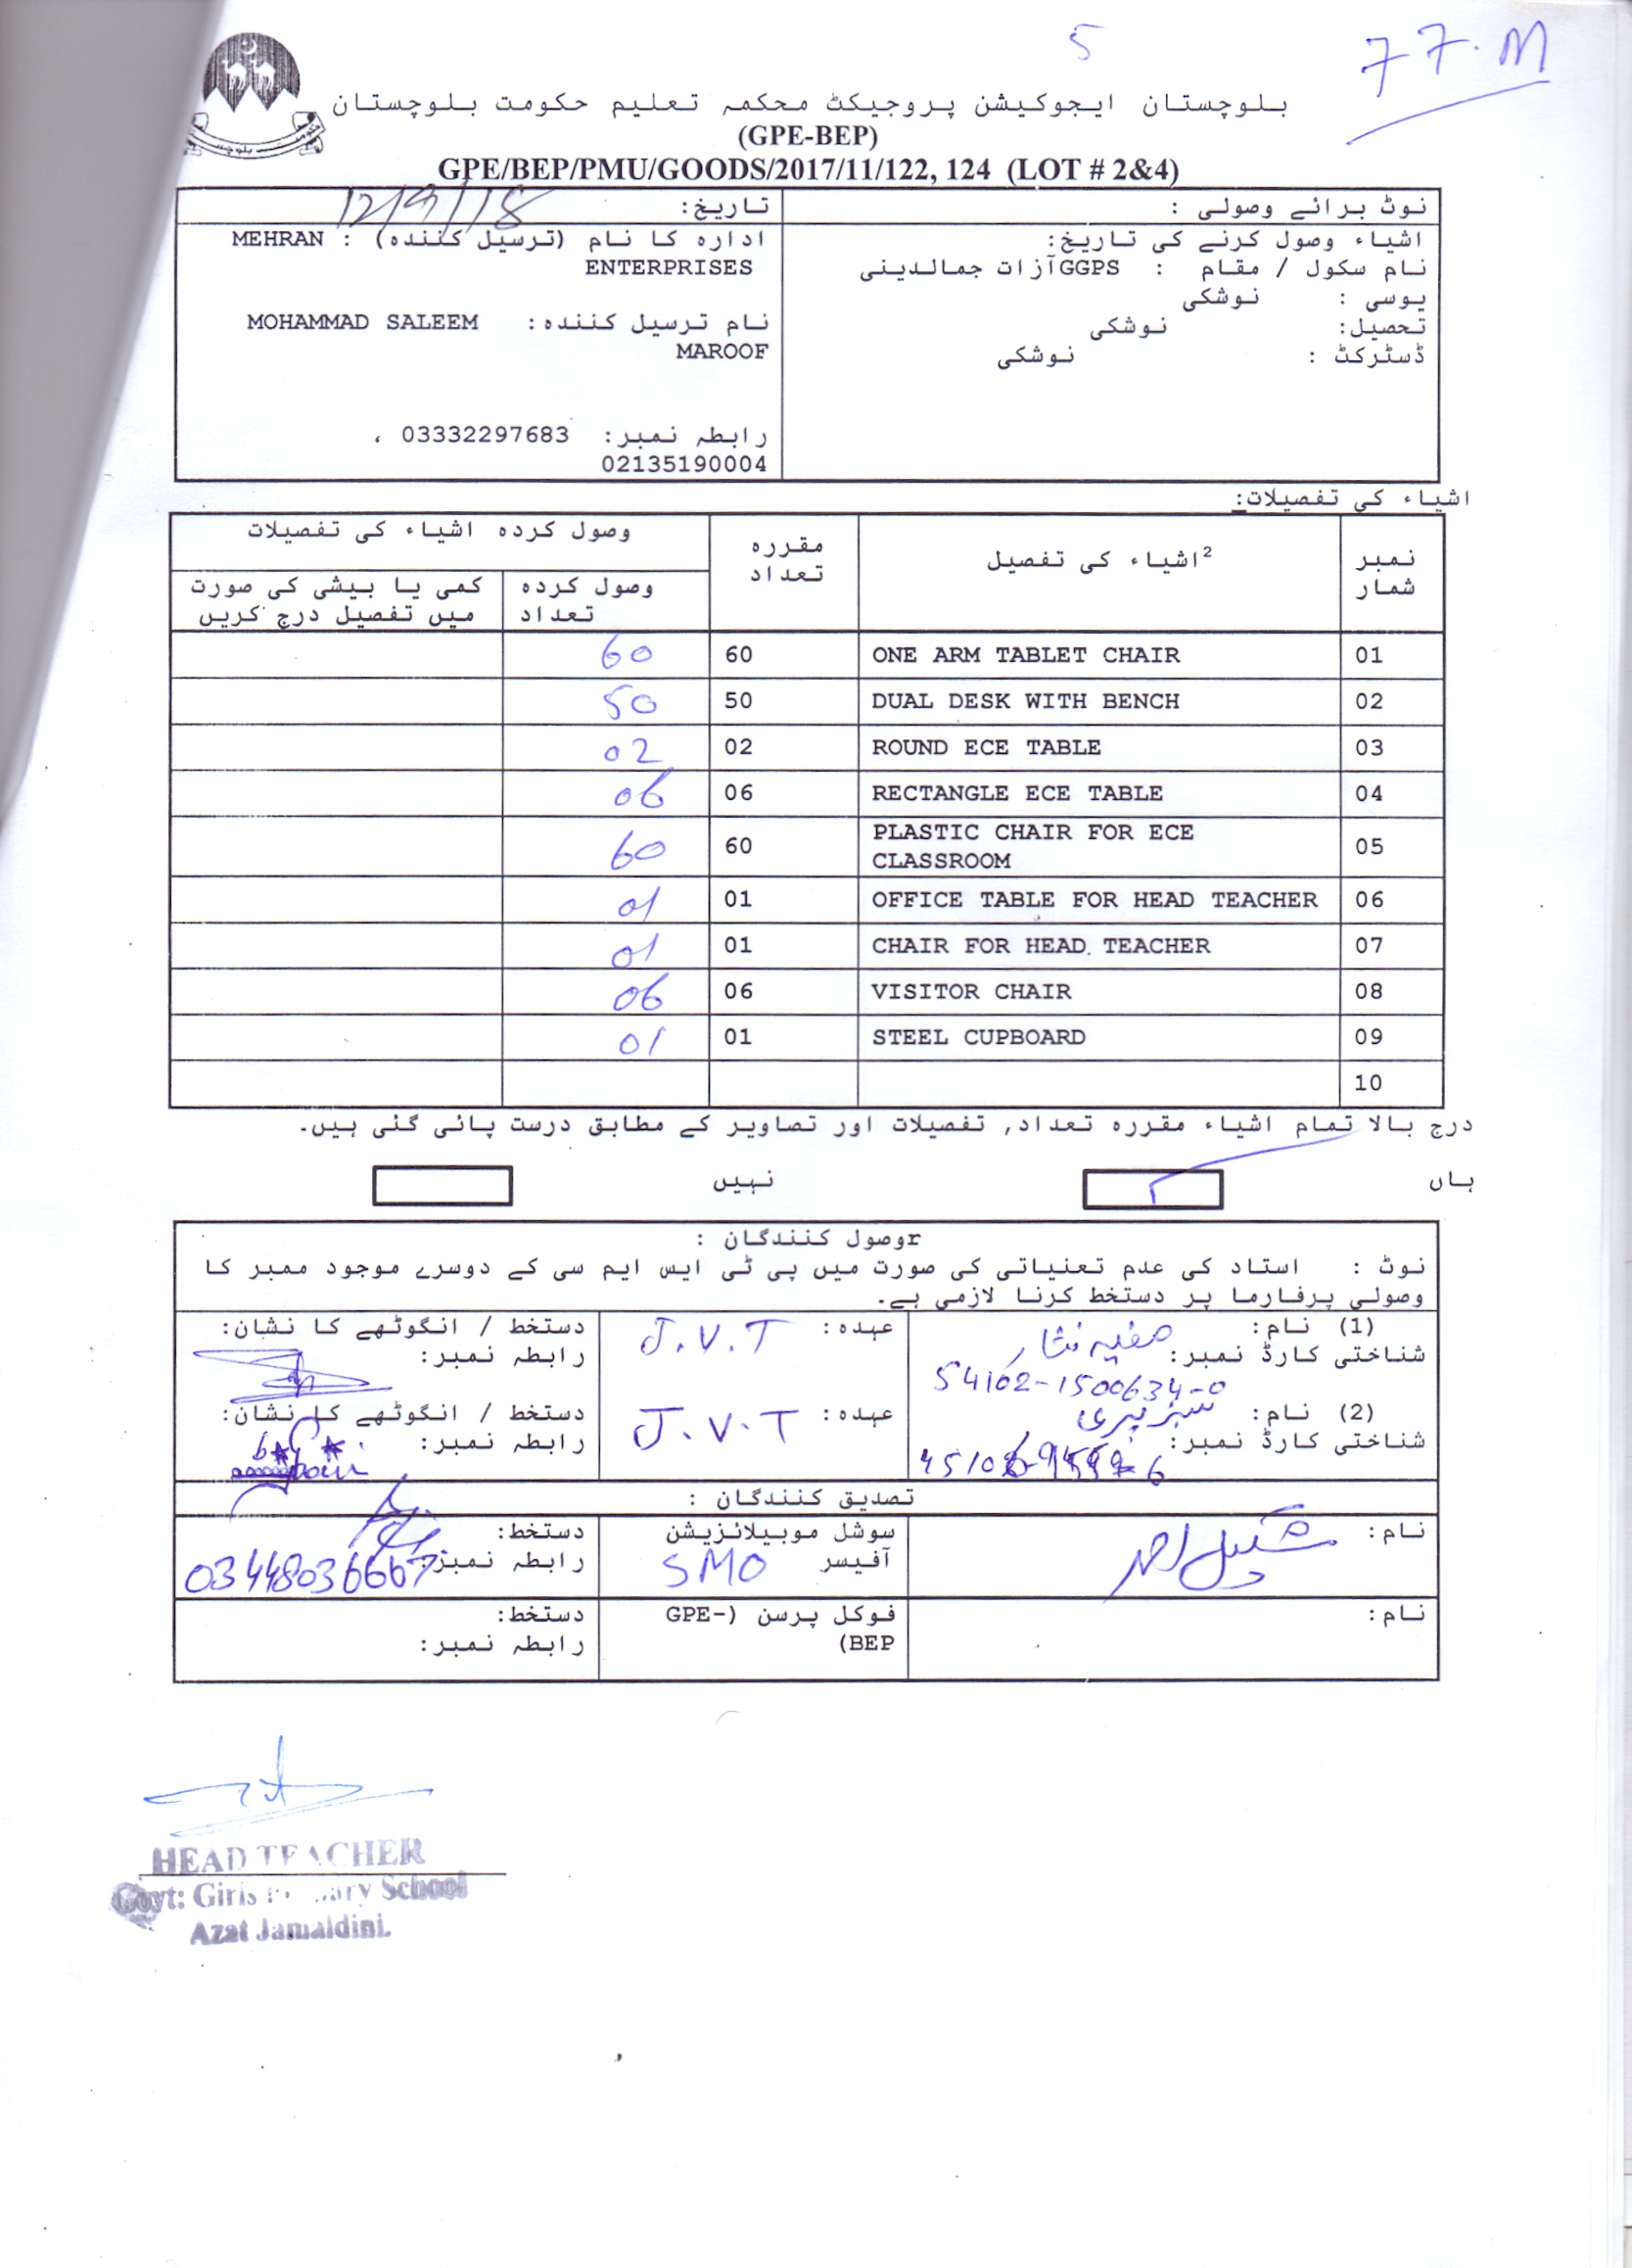 5
77.M
بلوچستان ایجوکیشن پروجیکٹ محکمہ تعلیم حکومت بلوچستان
(GPE-BEP)
GPE/BEP/PMU/GOODS/2017/11/122, 124 (LOT # 2&4)
نوٹ برائے وصولی :
اشیاء وصول کرنے کی تاریخ:
نام سکول / مقام : GGPS آزات جمالدینی
یوسی : نوشکی
تحصیل: نوشکی
ڈسٹرکٹ : نوشکی
تاریخ: 12/9/18
ادارہ کا نام (ترسیل کنندہ) : MEHRAN
ENTERPRISES
نام ترسیل کنندہ: MOHAMMAD SALEEM
MAROOF
رابطہ نمبر: 03332297683 ،
02135190004
اشیاء کی تفصیلات:
نمبر شمار | اشیاء کی تفصیل2 | مقررہ تعداد | وصول کردہ اشیاء کی تفصیلات
وصول کردہ تعداد | کمی یا بیشی کی صورت میں تفصیل درج کریں
01 ONE ARM TABLET CHAIR 60 60
02 DUAL DESK WITH BENCH 50 50
03 ROUND ECE TABLE 02 02
04 RECTANGLE ECE TABLE 06 06
05 PLASTIC CHAIR FOR ECE CLASSROOM 60 60
06 OFFICE TABLE FOR HEAD TEACHER 01 01
07 CHAIR FOR HEAD TEACHER 01 01
08 VISITOR CHAIR 06 06
09 STEEL CUPBOARD 01 01
10
درج بالا تمام اشیاء مقررہ تعداد, تفصیلات اور تصاویر کے مطابق درست پائی گئی ہیں۔
ہاں نہیں
rوصول کنندگان :
نوٹ : استاد کی عدم تعنیاتی کی صورت میں پی ٹی ایس ایم سی کے دوسرے موجود ممبر کا
وصولی پرفارما پر دستخط کرنا لازمی ہے۔
(1) نام: صفیہ نثار
شناختی کارڈ نمبر:
54102-1500634-0
عہدہ: J.V.T
دستخط / انگوٹھے کا نشان:
رابطہ نمبر:
(2) نام:
شناختی کارڈ نمبر:
عہدہ: J.V.T
دستخط / انگوٹھے کا نشان:
رابطہ نمبر:
تصدیق کنندگان :
نام: شکیل احمد
سوشل موبیلائزیشن
آفیسر SMO
دستخط:
رابطہ نمبر: 03448036667
نام:
فوکل پرسن (GPE-
BEP)
دستخط:
رابطہ نمبر:
HEAD TEACHER
Govt: Girls Primary School
Azat Jamaldini.